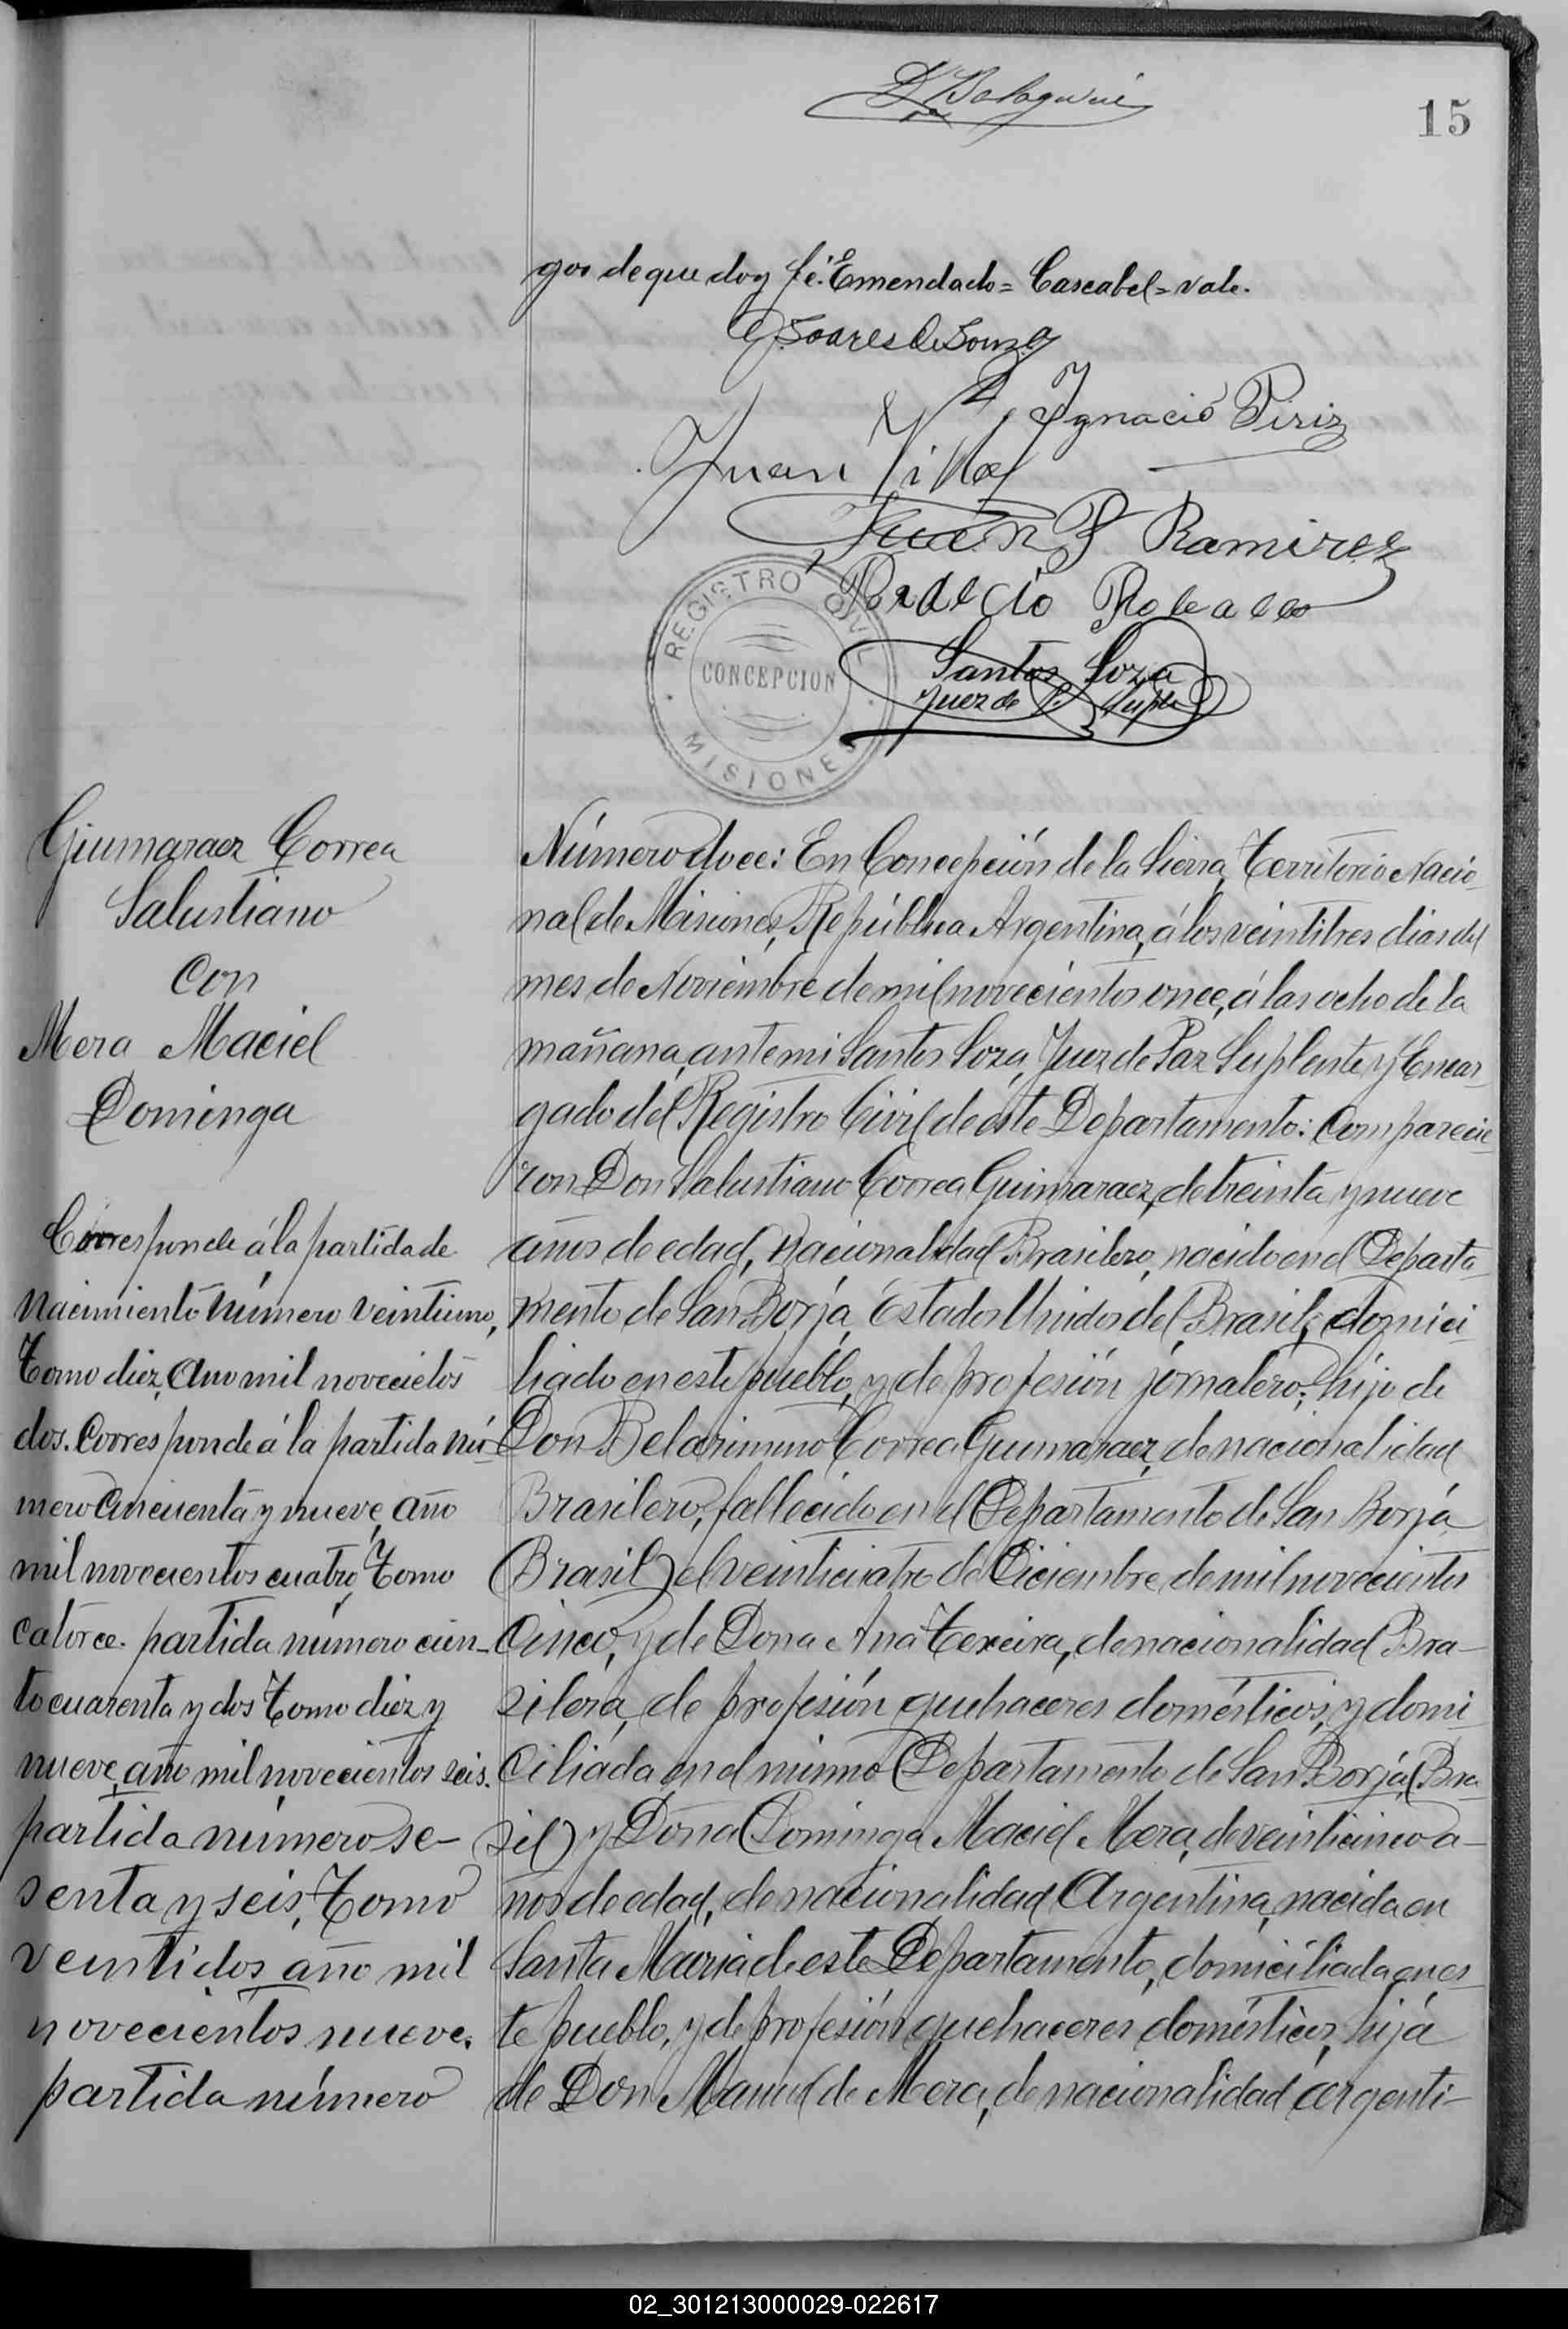 15
gos de que doy fé. Emendado = Cascabel = vale.
Ignacio Piriz
Juan Villa
Juan P Ramirez
REGISTRO CIVIL
CONCEPCION
MISIONES
Santos Soza
Juez de P. Suple
Giumaraez Correa
Salustiano
Con
Mera Maciel
Dominga
Corresponde á la partida de
Nacimiento número veintiuno,
Tomo diez, año mil novecietos
dos. Corresponde á la partida nú-
mero cincuenta y nueve, año
mil novecientos cuatro, Tomo
catorce. partida número cien-
to cuarenta y dos Tomo diez y
nueve, año mil novecientos seis.
partida número se-
senta y seis, Tomo
veintidos año mil
novecientos nueve.
partida número
Número doce: En Concepción de la Sierra, Territorio Nacio-
nal de Misiones, República Argentina, á los veintitres dias del
mes de Noviembre de mil novecientos once, á las ocho de la
mañana, ante mi Santos Soza, Juez de Paz Suplente y Encar-
gado del Registro Civil de este Departamento: Comparecie-
ron Don Salustiano Correa Guimaraez, de treinta y nueve
años de edad, nacionalidad Brasilero, nacido en el Departa-
mento de San Borja, Estados Unidos del Brasil, domici-
liado en este pueblo, y de profesión jornalero; hijo de
Don Belarimino Correa Guimaraez, de nacionalidad
Brasilero, fallecido en el Departamento de San Borja
(Brasil) el veinticuatro de Diciembre de mil novecientos
cinco, y de Dona Ana Texeira, de nacionalidad Bra-
silera, de profesión quehaceres domésticos, y domi-
ciliada en el mismo Departamento de San Borja (Bra-
sil) y Dona Dominga Maciel Mera, de veinticinco a-
ños de edad, de nacionalidad Argentina, nacida en
Santa Maria de este Departamento, domiciliada en es-
te pueblo, y de profesión quehaceres domésticos, hija
de Don Manuel de Mera, de nacionalidad argenti-
02_301213000029-022617